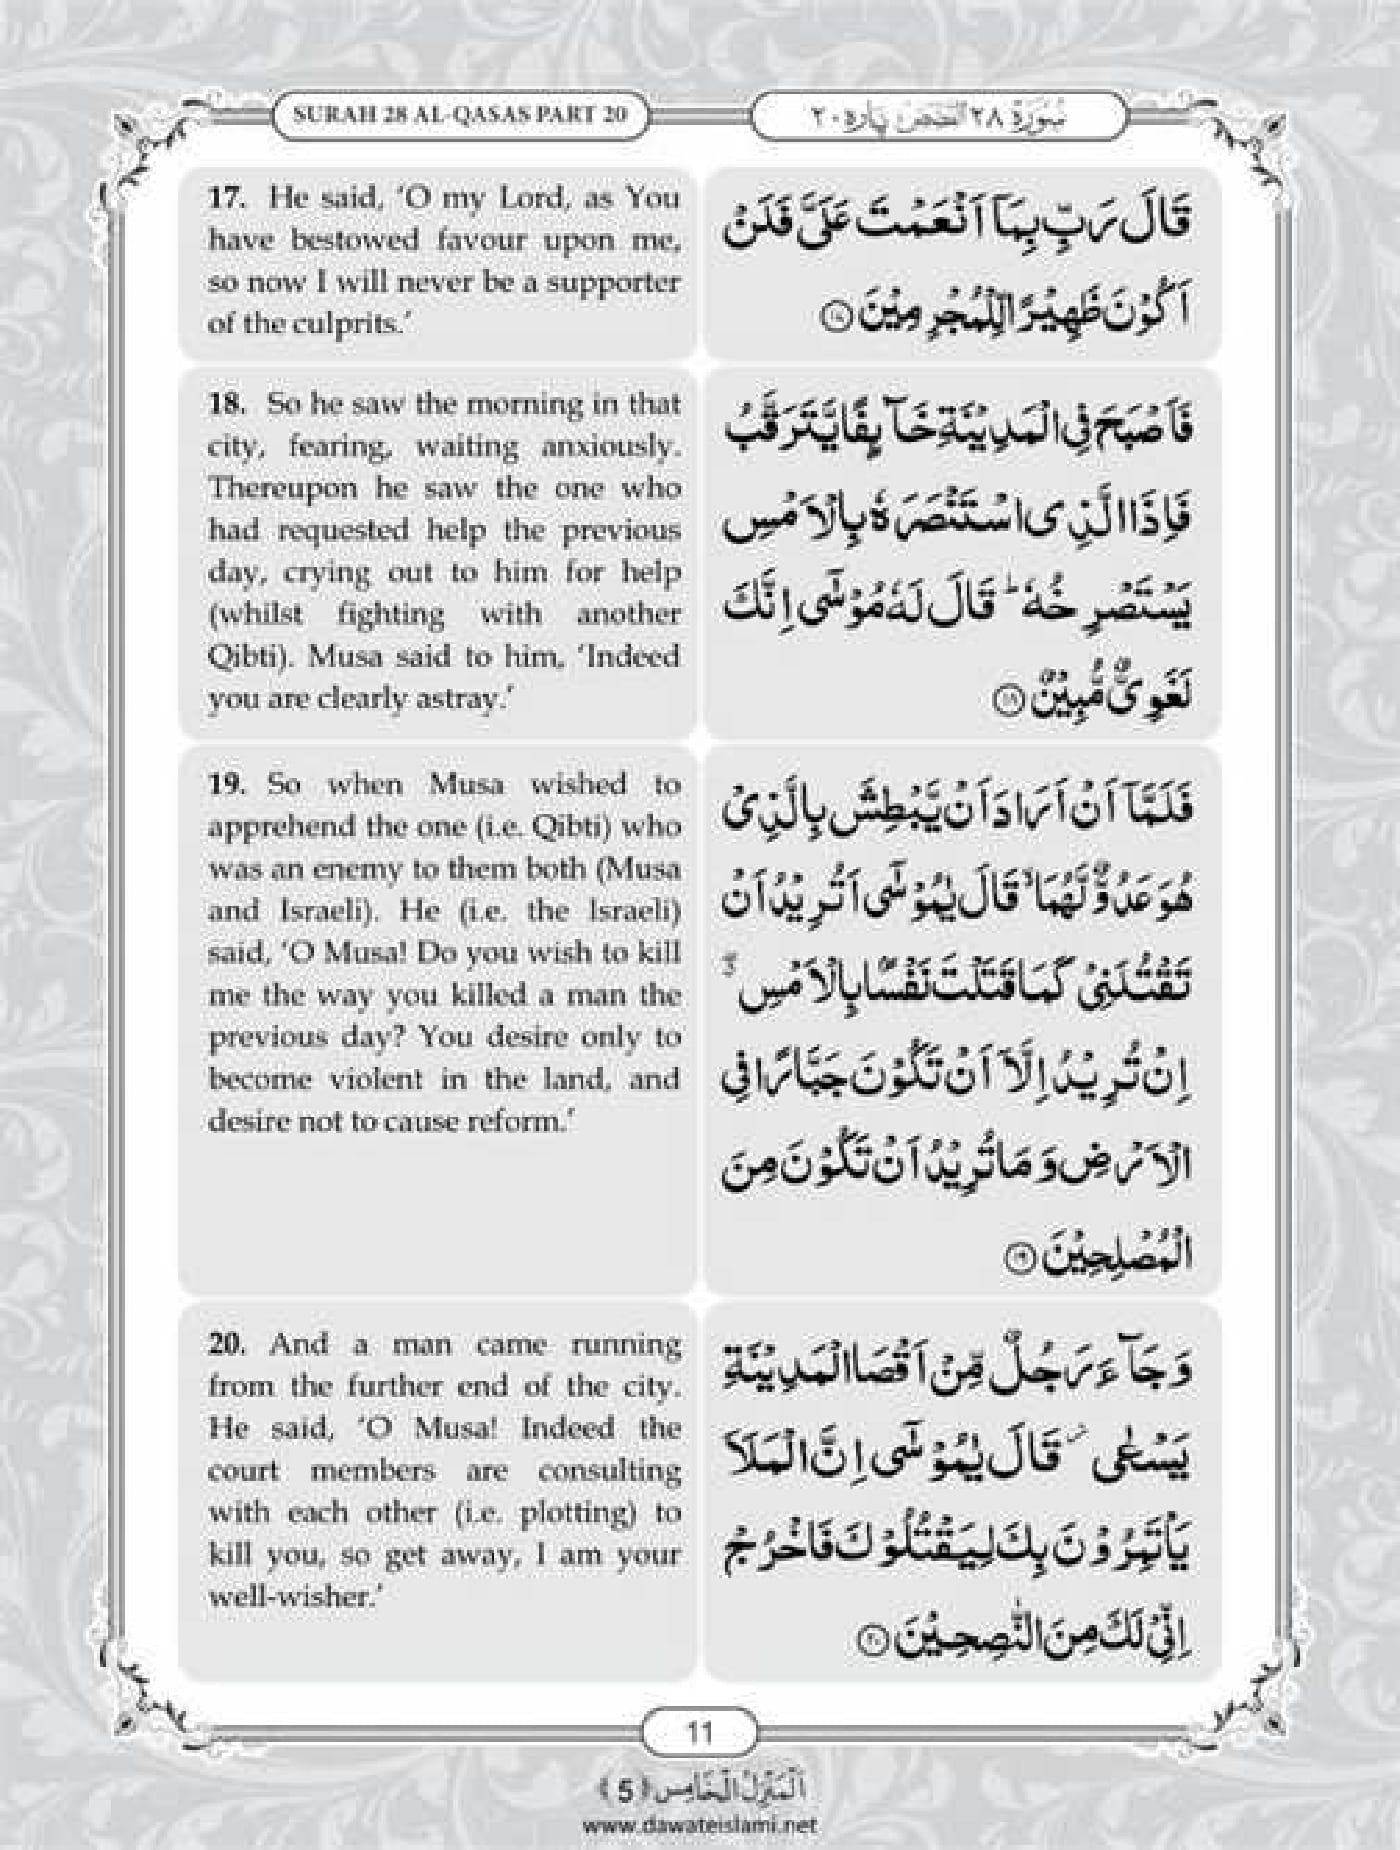 SURAH 28 AL-QASAS PART 20
سُوْرَةُ ٢٨ الْقَصَصْ پارہ ٢٠
17. He said, ‘O my Lord, as You
have bestowed favour upon me,
so now I will never be a supporter
of the culprits.’
قَالَ رَبِّ بِمَاۤ اَنْعَمْتَ عَلَیَّ فَلَنْ
اَكُوْنَ ظَهِیْرًا لِّلْمُجْرِمِیْنَ ﴿۱۷﴾
18. So he saw the morning in that
city, fearing, waiting anxiously.
Thereupon he saw the one who
had requested help the previous
day, crying out to him for help
(whilst fighting with another
Qibti). Musa said to him, ‘Indeed
you are clearly astray.’
فَاَصْبَحَ فِی الْمَدِیْنَةِ خَآىِٕفًا یَّتَرَقَّبُ
فَاِذَا الَّذِی اسْتَنْصَرَهٗ بِالْاَمْسِ
یَسْتَصْرِخُهٗ ؕ قَالَ لَهٗ مُوْسٰۤی اِنَّكَ
لَغَوِیٌّ مُّبِیْنٌ ﴿۱۸﴾
19. So when Musa wished to
apprehend the one (i.e. Qibti) who
was an enemy to them both (Musa
and Israeli). He (i.e. the Israeli)
said, ‘O Musa! Do you wish to kill
me the way you killed a man the
previous day? You desire only to
become violent in the land, and
desire not to cause reform.’
فَلَمَّاۤ اَنْ اَرَادَ اَنْ یَّبْطِشَ بِالَّذِیْ
هُوَ عَدُوٌّ لَّهُمَا ۙ قَالَ یٰمُوْسٰۤی اَتُرِیْدُ اَنْ
تَقْتُلَنِیْ كَمَا قَتَلْتَ نَفْسًۢا بِالْاَمْسِ ۖۗ
اِنْ تُرِیْدُ اِلَّاۤ اَنْ تَكُوْنَ جَبَّارًا فِی
الْاَرْضِ وَ مَا تُرِیْدُ اَنْ تَكُوْنَ مِنَ
الْمُصْلِحِیْنَ ﴿۱۹﴾
20. And a man came running
from the further end of the city.
He said, ‘O Musa! Indeed the
court members are consulting
with each other (i.e. plotting) to
kill you, so get away, I am your
well-wisher.’
وَ جَآءَ رَجُلٌ مِّنْ اَقْصَا الْمَدِیْنَةِ
یَسْعٰی ۫ قَالَ یٰمُوْسٰۤی اِنَّ الْمَلَاَ
یَاْتَمِرُوْنَ بِكَ لِیَقْتُلُوْكَ فَاخْرُجْ
اِنِّیْ لَكَ مِنَ النّٰصِحِیْنَ ﴿۲۰﴾
11
اَلْمَنْزِلُ الْخَامِس ﴿5﴾
www.dawateislami.net